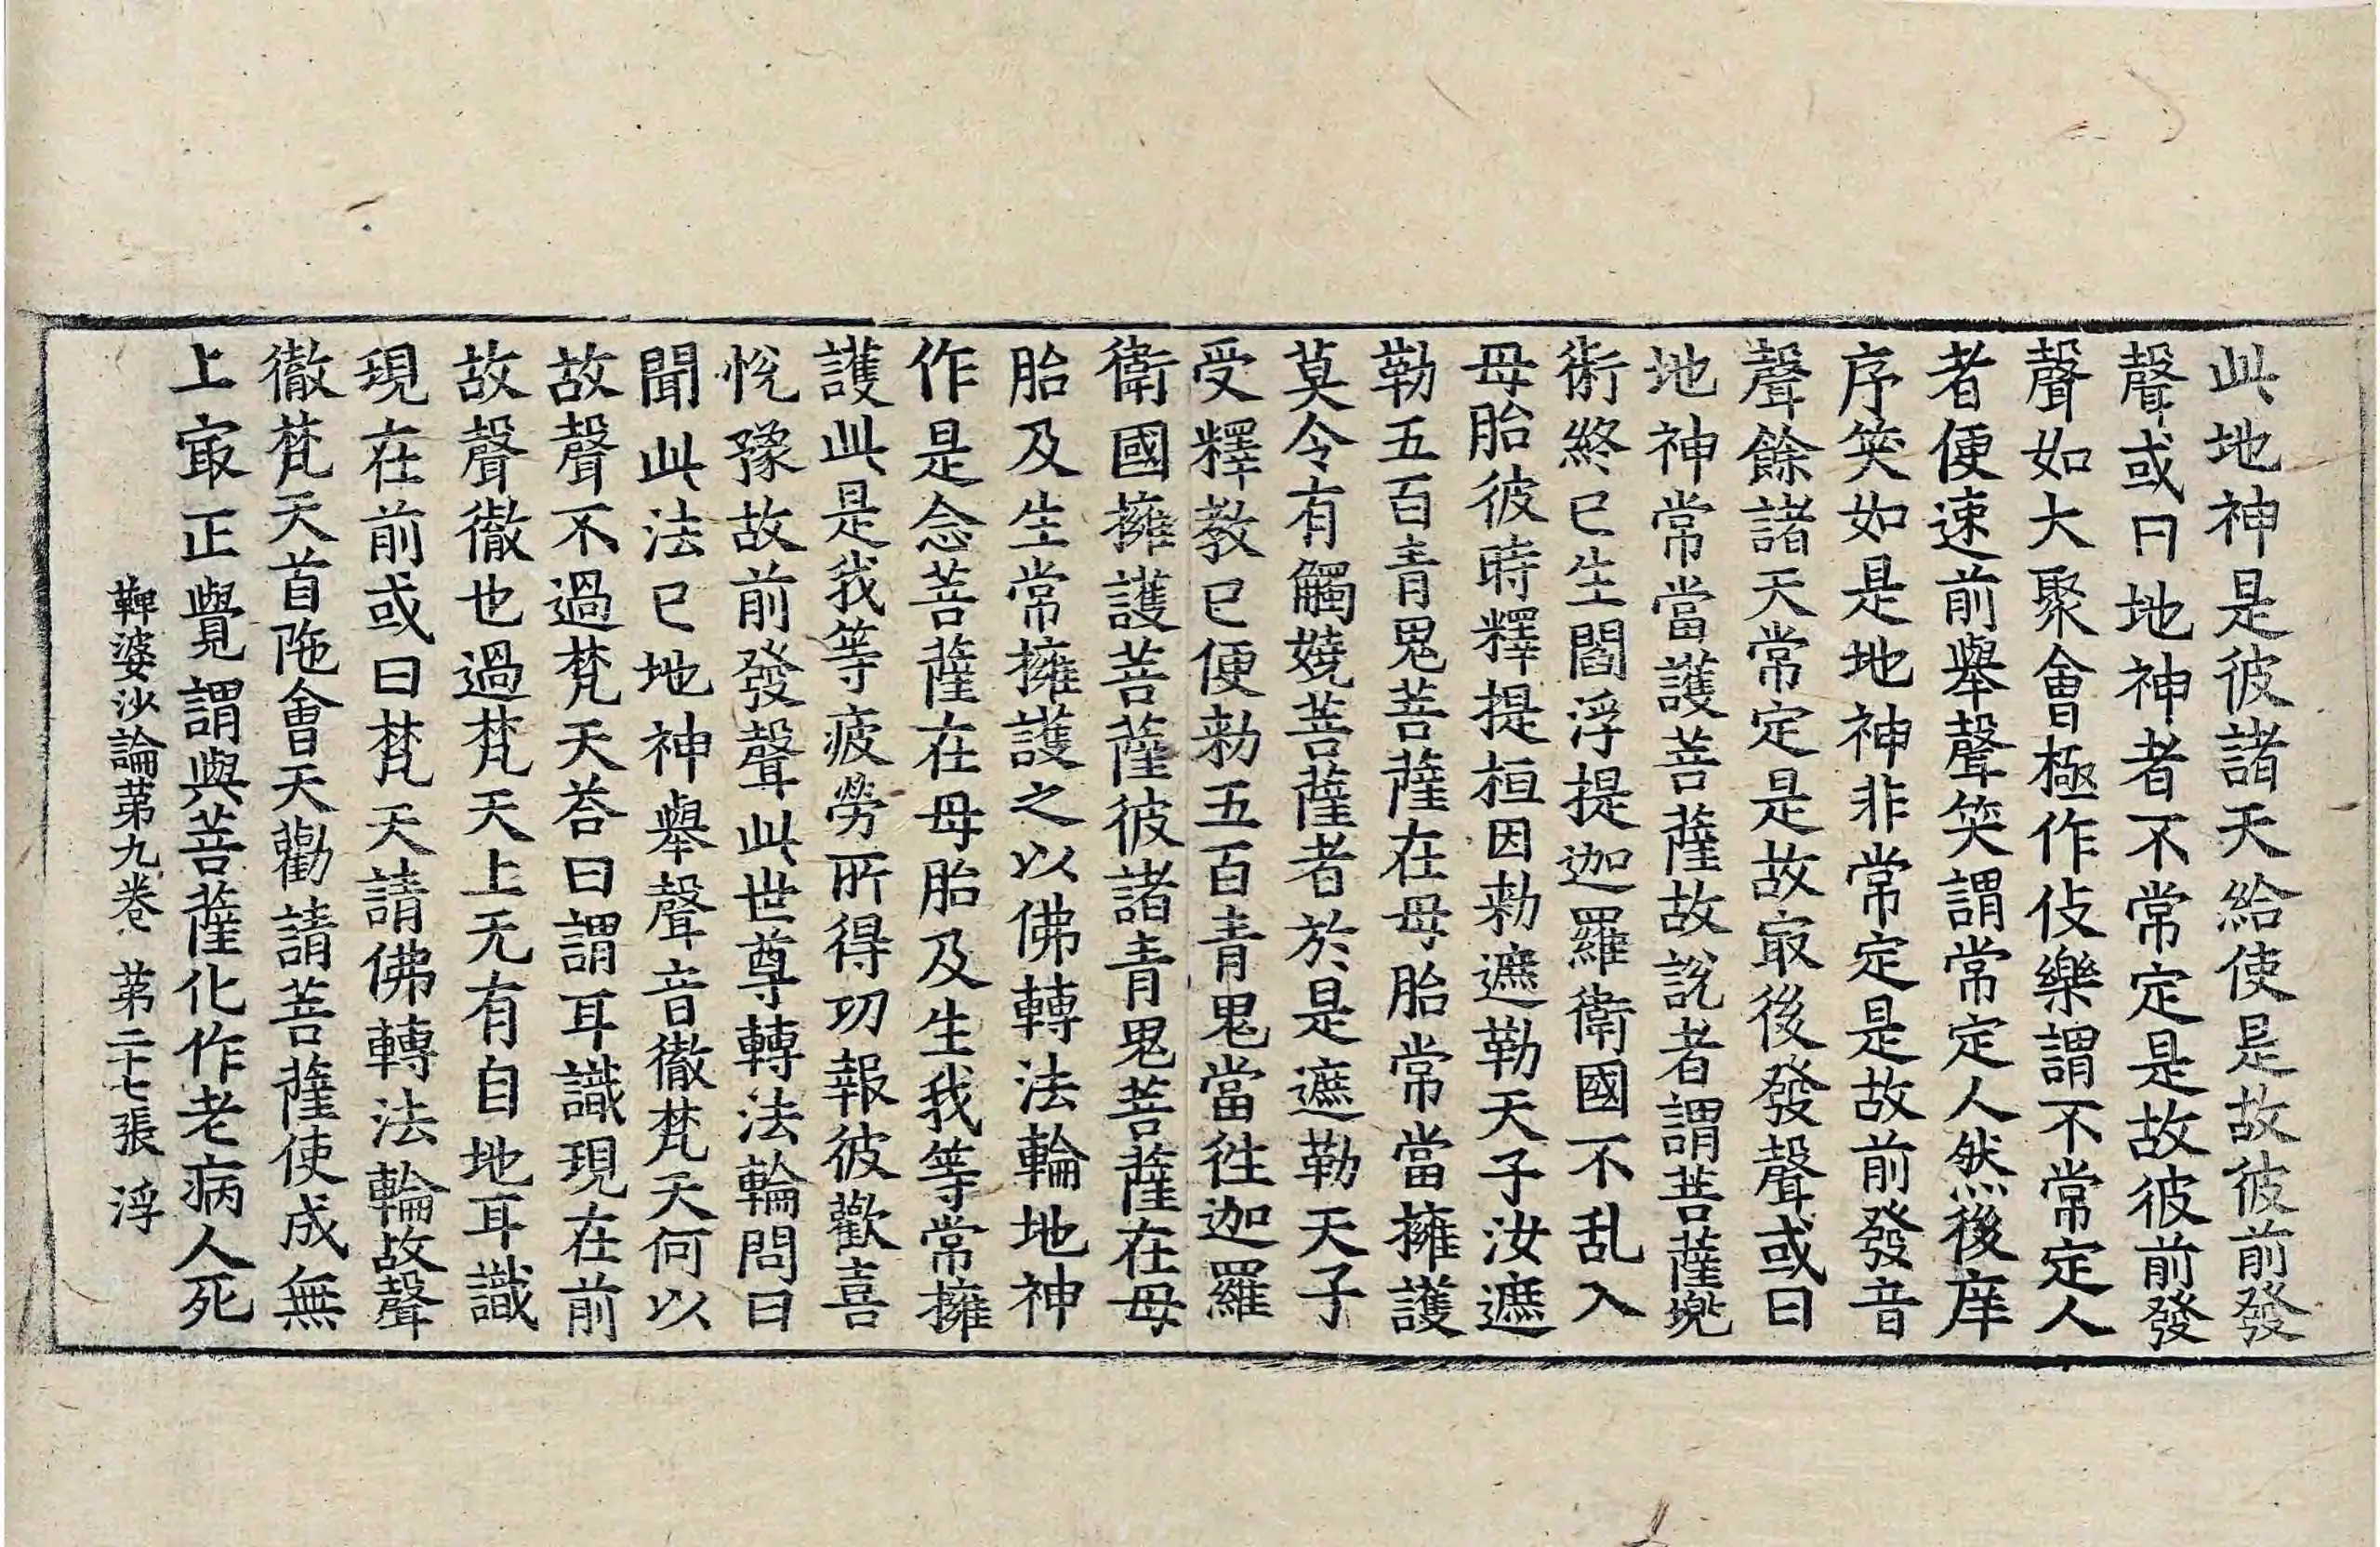 此地神是彼諸天給使是故彼前發
聲或曰地神者不常定是故彼前發
聲如大聚會極作伎樂謂不常定人
者便速前舉聲笑謂常定人然後庠
序笑如是地神非常定是故前發音
聲餘諸天常定是故㝡後發聲或曰
地神常當護菩薩故說者謂菩薩兠
術終已生閻浮提迦羅衛國不乱入
母胎彼時釋提桓因勑遮勒天子汝遮
勒五百青鬼菩薩在母胎常當擁護
莫令有觸嬈菩薩者於是遮勒天子
受釋教已便勑五百青鬼當往迦羅
衛國擁護菩薩彼諸青鬼菩薩在母
胎及生常擁護之以佛轉法輪地神
作是念菩薩在母胎及生我等常擁
護此是我等疲勞所得功報彼歡喜
悅豫故前發聲此世尊轉法輪問曰
聞此法已地神舉聲音徹梵天何以
故聲不過梵天荅曰謂耳識現在前
故聲徹也過梵天上无有自地耳識
現在前或曰梵天請佛轉法輪故聲
徹梵天首陁會天勸請菩薩使成無
上㝡正覺謂與菩薩化作老病人死
鞞婆沙論第九卷 第二十七張 浮